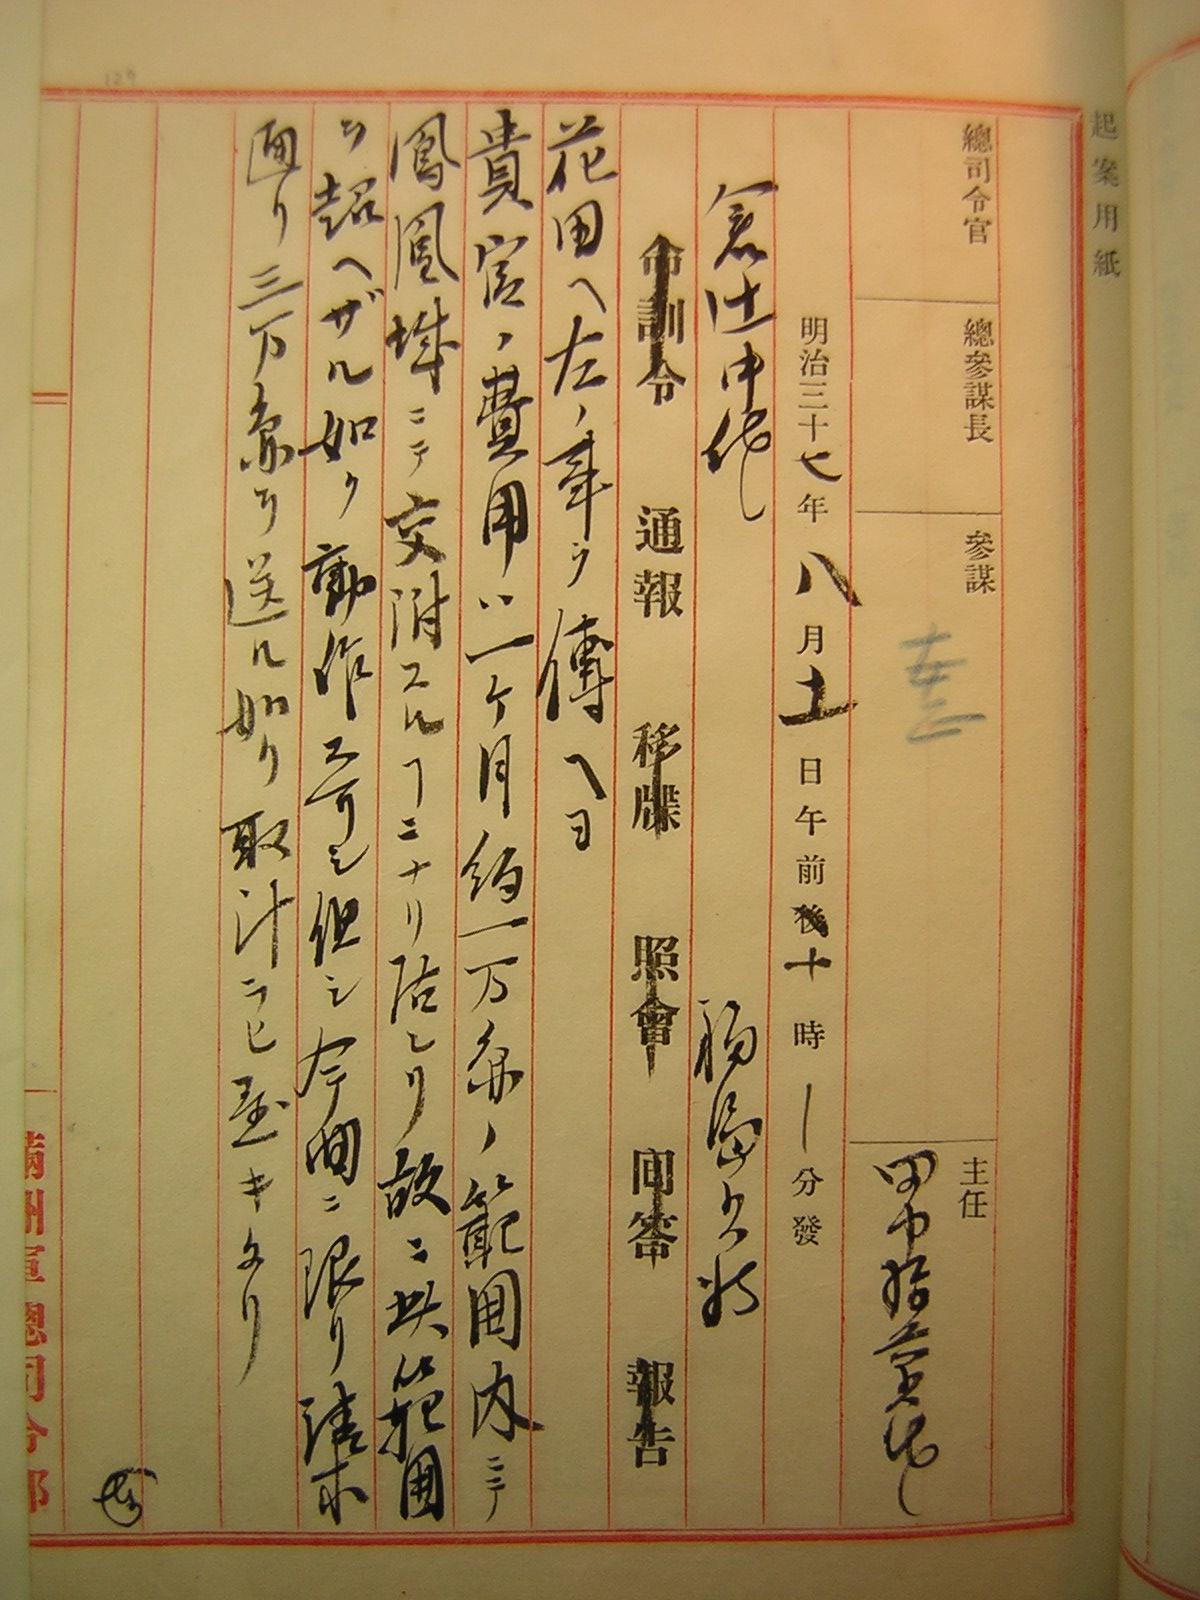 起案用紙
總司令官
總參謀長
參謀
主任 田中
明治三十七年八月十一日午前後十時 分發
倉辻中佐 福島少将
命訓令 通報 移牒 照會 回答 報告
花田ヘ左ノ事ヲ傳ヘヨ
貴官ノ費用ハ一ケ月約一万弗ノ範囲内ニテ
鳳凰城ニテ交附スルヿニナリ居レリ故ニ此範囲
ヲ超ヘザル如ク動作スヘシ但シ今回ニ限リ請求
通リ三万弗ヲ送ル如ク取計ラヒ置キタリ
滿洲軍總司令部
129